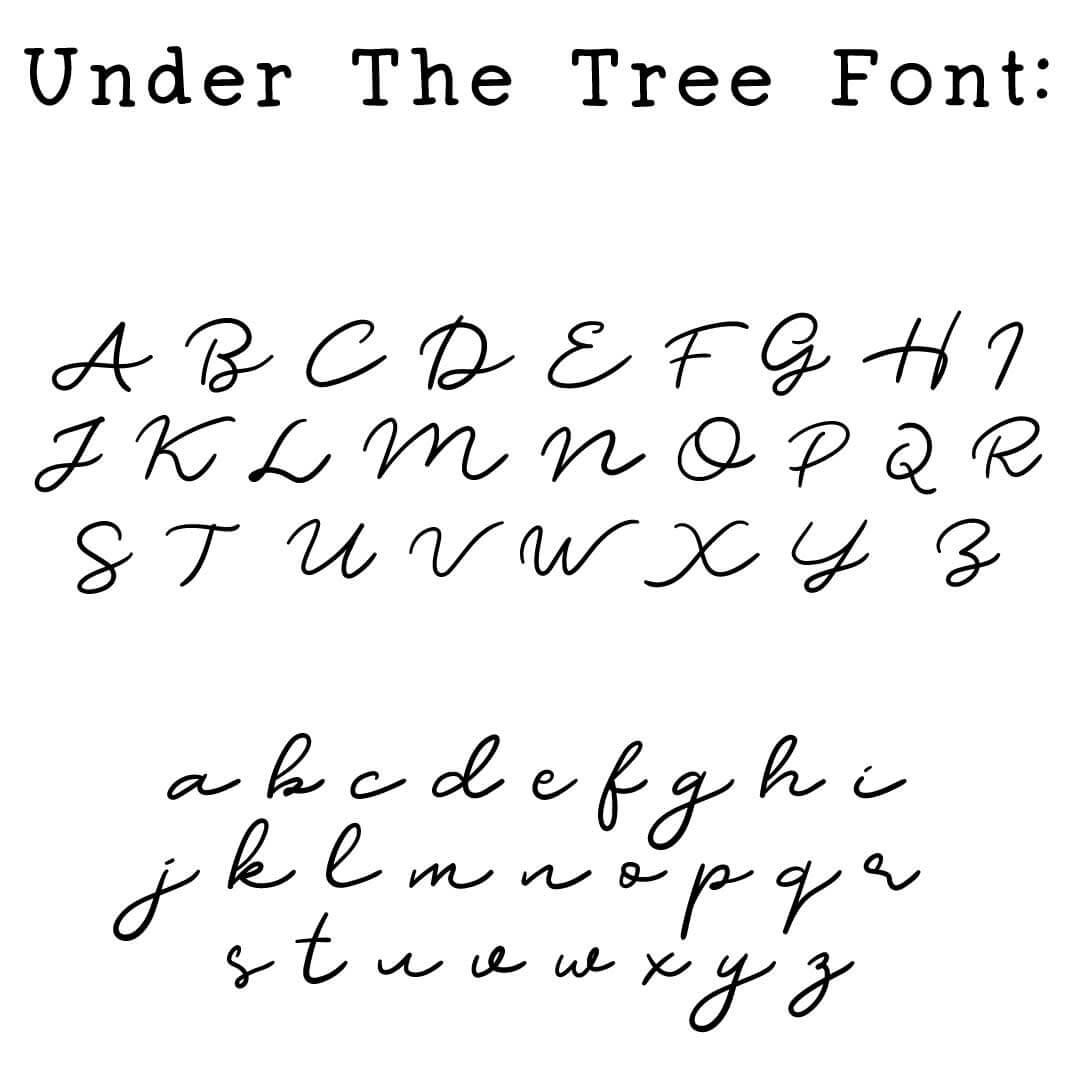 Under The Tree Font:
A B C D E F G H I
J K L M N O P Q R
S T U V W X Y Z
a b c d e f g h i
j k l m n o p q r
s t u v w x y z